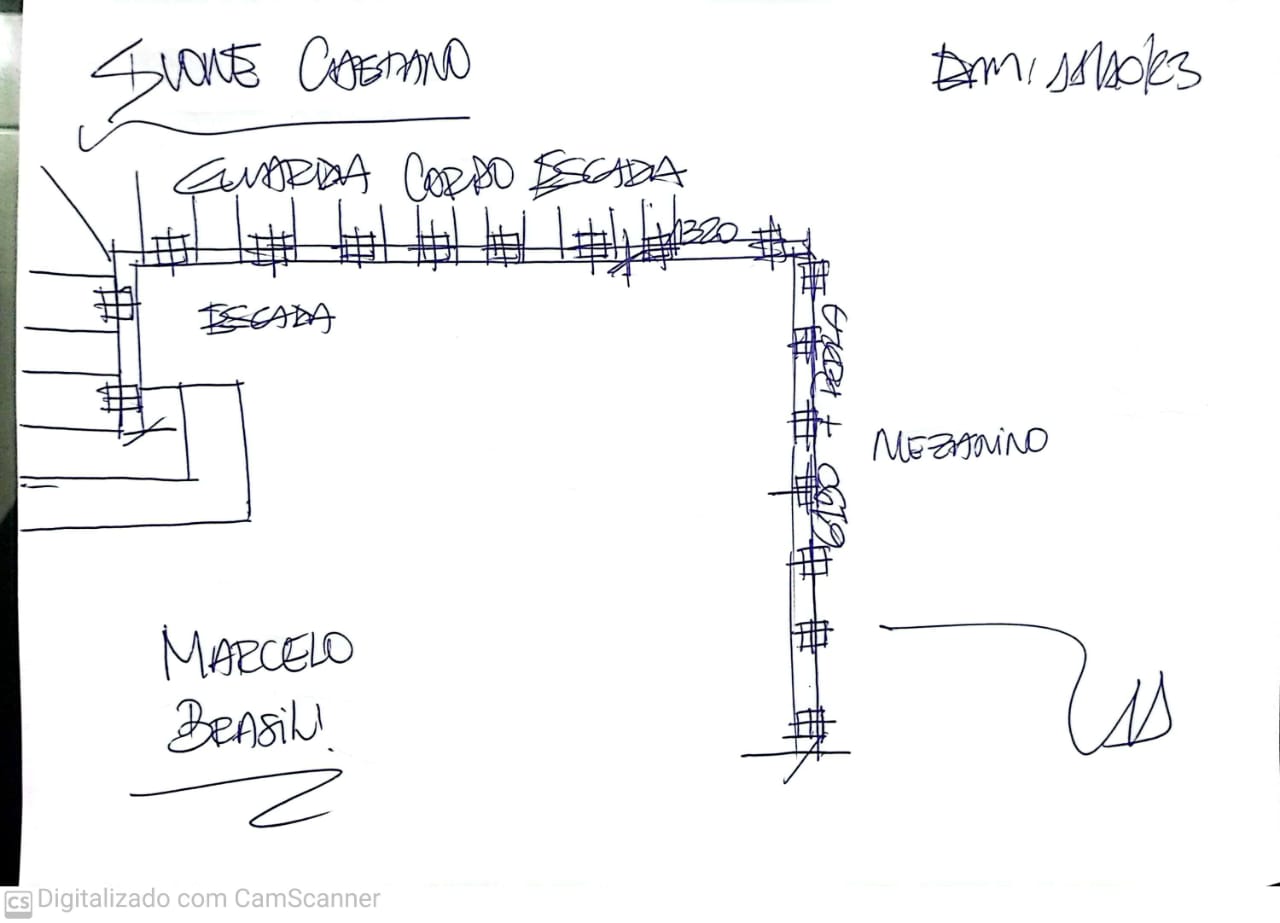 IVONE CAETANO
GUARDA CORPO ESCADA
1320
ESCADA
MEZANINO
MARCELO
BRASIL!
CS Digitalizado com CamScanner